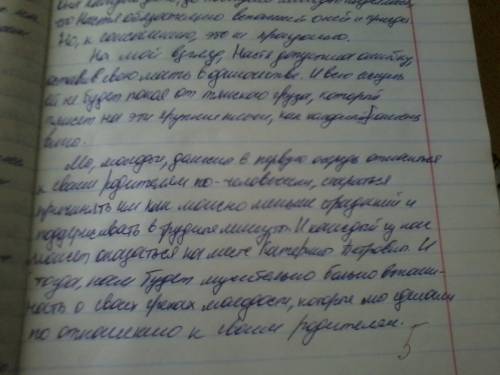 что Настя обязательно вспомнит о ней и приедет
Но, к сожалению, это не произошло.
На мой взгляд, Настя допустила ошибку,
оставив свою мать в одиночестве. И всю жизнь
ей не будет покоя от тяжского груза, который
ляжет на эти хрупкие плечи, как
вино.
Мы, молодёжь, должны в первую очередь относиться
к своим родителям по-человечески, стараться
причинять им как можно меньше страданий и
поддерживать в трудные минуты. И каждый из нас
может оказаться на месте Катерины Петровны. И
тогда, нам будет мучительно больно вспоми-
нать о своих грехах молодости, которые мы сделали
по отношению к своим родителям.
5